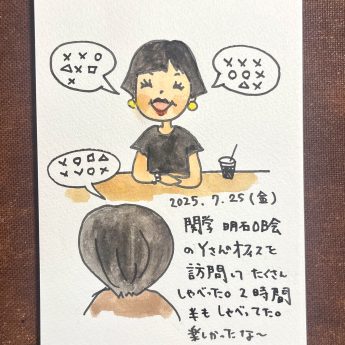 ××○
△×□
×××
○○×
△×
×○□△
×✓○×
2025.7.25(金)
関学 明石OB会
のYさんがオフィスを
訪問して たくさん
しゃべった。2時間
半も しゃべってた。
楽しかったな〜